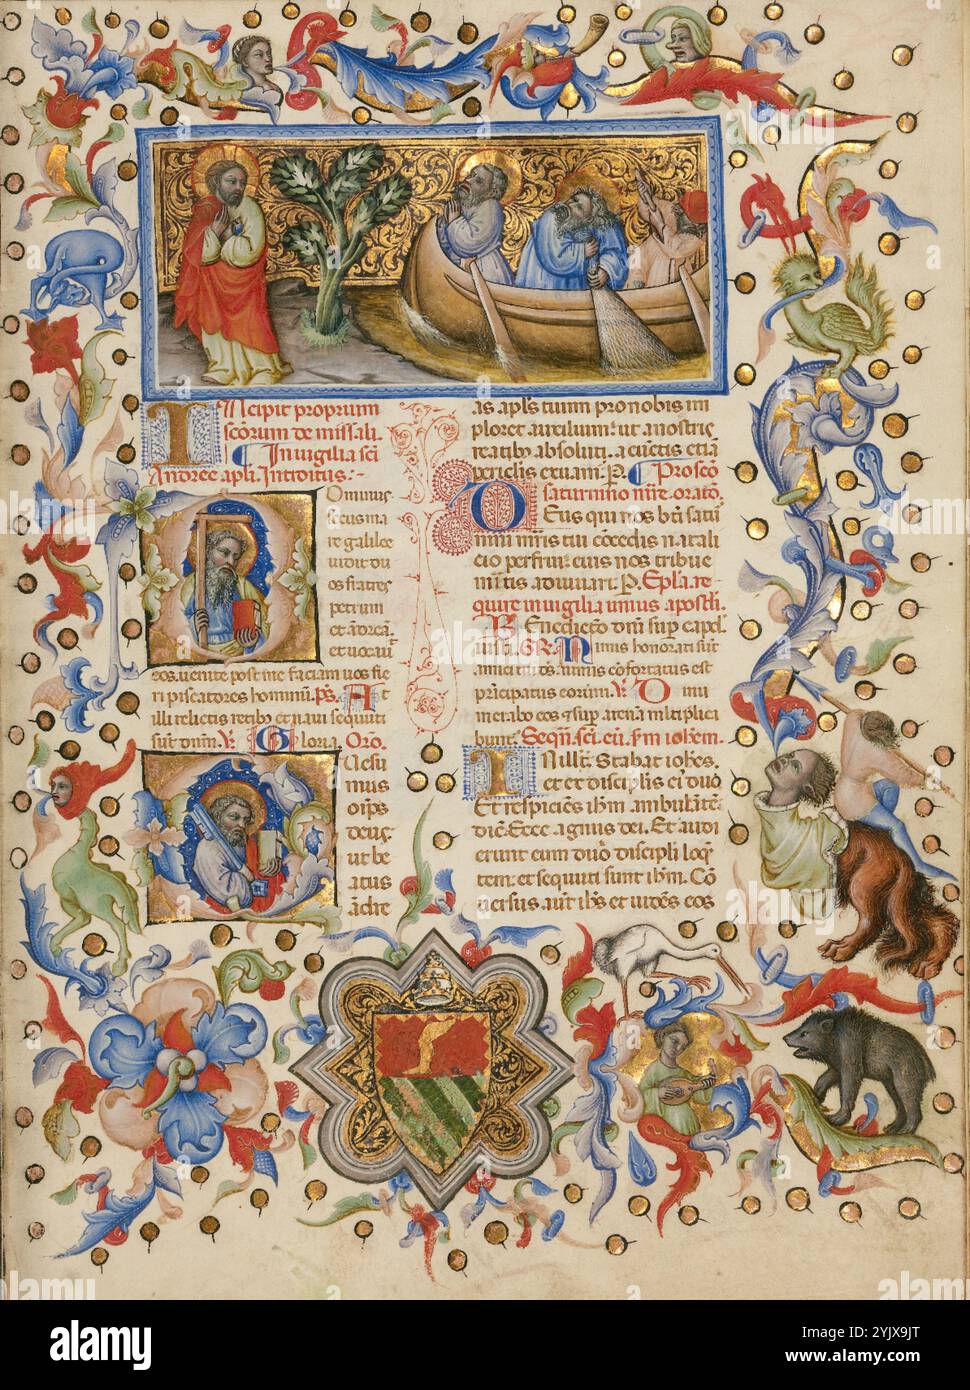 INcipit proprium
scōrum de missali.
In uigilia scī
Andree apłi. Introitus:-
Ominus
secus ma
re galilee
uidit du
os fratres
petrum
et andreā
et uocaui
eos. uenite post me faciam uos fie
ri piscatores hominū. Ps. At
illi relictis retibꝰ et naui sequuti
sūt dn̄m. V̶ Gloria. Or̄o.
Uesu
mus
om̄ps
deus,
ut be
atus
ādre
as apłs tuum pro nobis im
ploret auxilium: ut a nostris
reatibꝰ absoluti. a cunctis etiā
periclis exuam̄. P. Pro scō
saturnino mr̄e. orato.
DEus qui nos bt̄i satur
nini mr̄is tui cōcedis natali
cio perfrui: eius nos tribue
mr̄itis adiuuari. P. Epła re-
quire in uigilia unius apostłi.
Benedictio dn̄i sup capđ
iusti. GR. Nimis honorati sūt
amici tui os. nimis cōfortatus est
prīncipatus eorum. V̶ Dinu
merabo eos ⁊ sup arenā multiplica
bunt. Sequn. scī. eū. s̄m ioh̄em.
IN illo t̄. Stabat ioh̄es.
et ex discipłis eī duo
Et respiciēs ih̄m ambulāte
dic̄. Ecce agnus dei. Et audi
erunt eum duo discipłi loq̄n
tem: et sequuti sunt ih̄m. Cō
uersus aūt ih̄s et uidēs eos
alamy
Image ID: 2YJX9JT
www.alamy.com